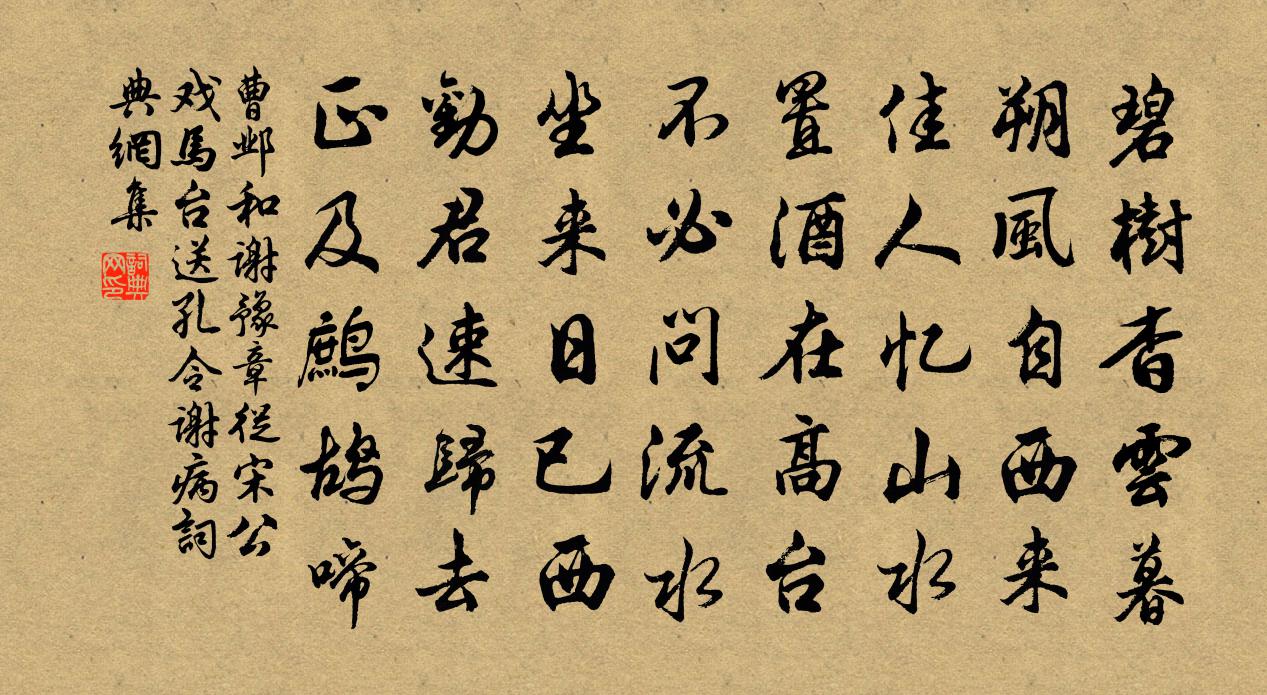 碧樹杳雲暮
朔風自西来
佳人忆山水
置酒在高台
不必问流水
坐来日已西
勸君速歸去
正及鷓鸪啼
曹邺和谢豫章從宋公
戏馬台送孔令谢病詞
典網集
詞典网印